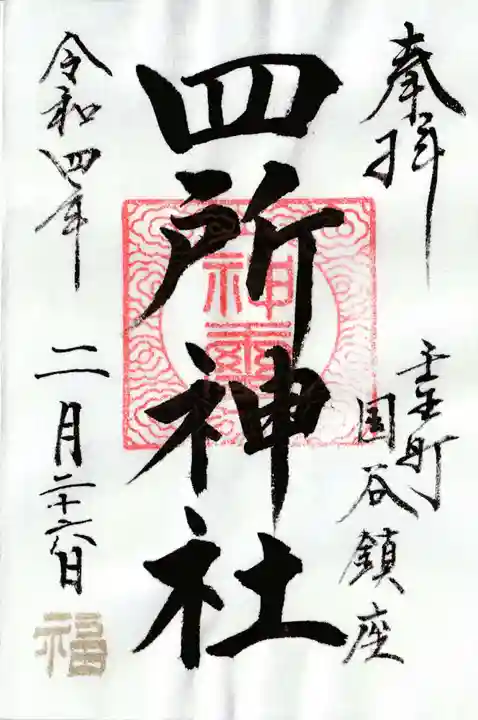 奉拝
壬生町
国谷鎮座
四所神社
神璽
令和四年
二月二十六日
福